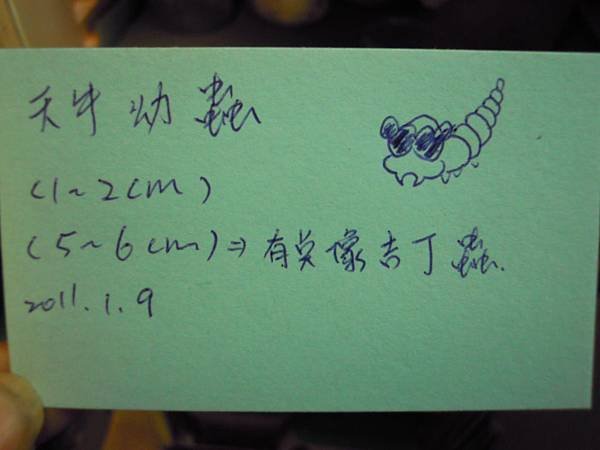 天牛幼蟲
(1~2cm)
(5~6cm)⇒有点像吉丁蟲.
2011.1.9